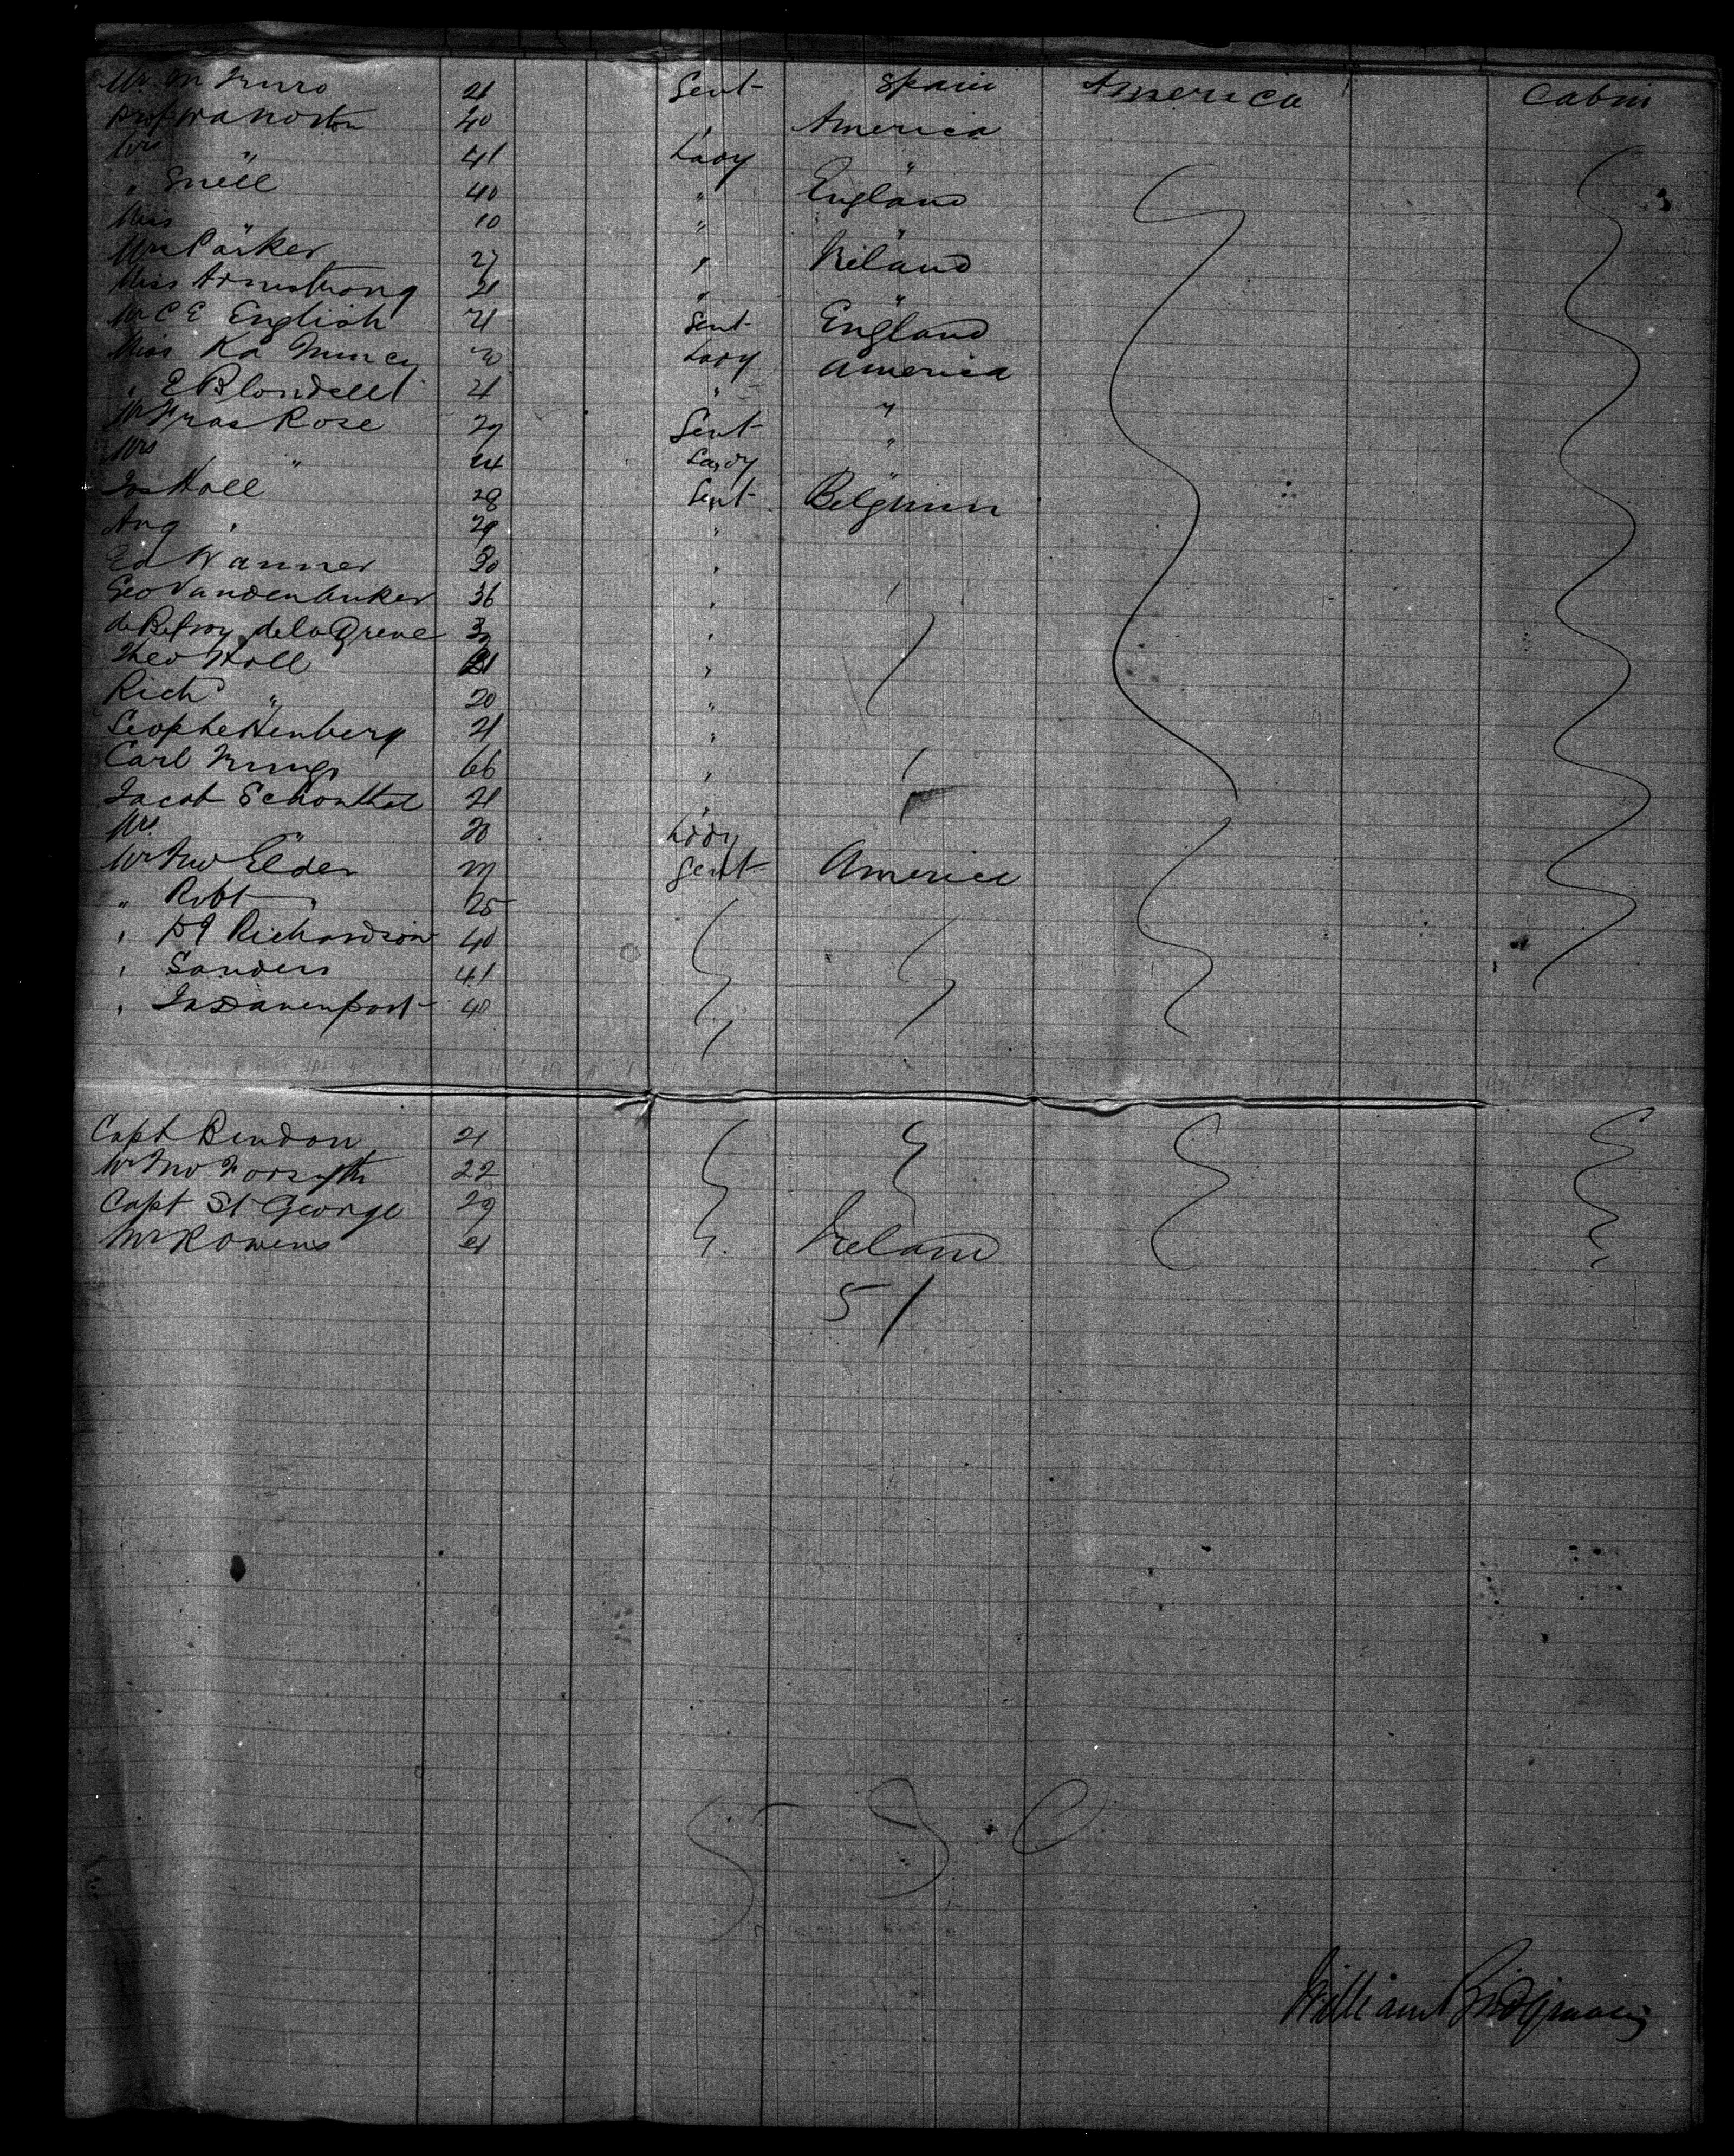 Mr. M 21 Gent Spain America Cabin
Prof Norton 40 " America
Mrs " 41 Lady "
" Snell 40 " England
Miss " 10 " "
Mrs Parker 27 " Ireland
Miss Armstrong 21 " "
Mr C E English 21 Gent England
Miss 20 Lady America
" E Blondell 21 " "
Mr Fras Rose 29 Gent "
Mrs " 24 Lady "
Jos Holl 28 Gent Belgium
Aug " 29 "
Ed Wanner 30 "
Geo Vandenbuker 36 "
de la "
Theo Holl 21 "
Rich " 20 "
21 "
Carl 66 "
Jacob Schonthal 21 "
Mrs. " 20 Lady
Mr Jno Elder Gent America
" Robt " 25
" Richardson 40
" Sanders 41
" Jas Davenport 40
Capt 21
Mr Jno Forsyth 22
Capt St George 29
Mr R Owens 21 Ireland
51
William Bridgman